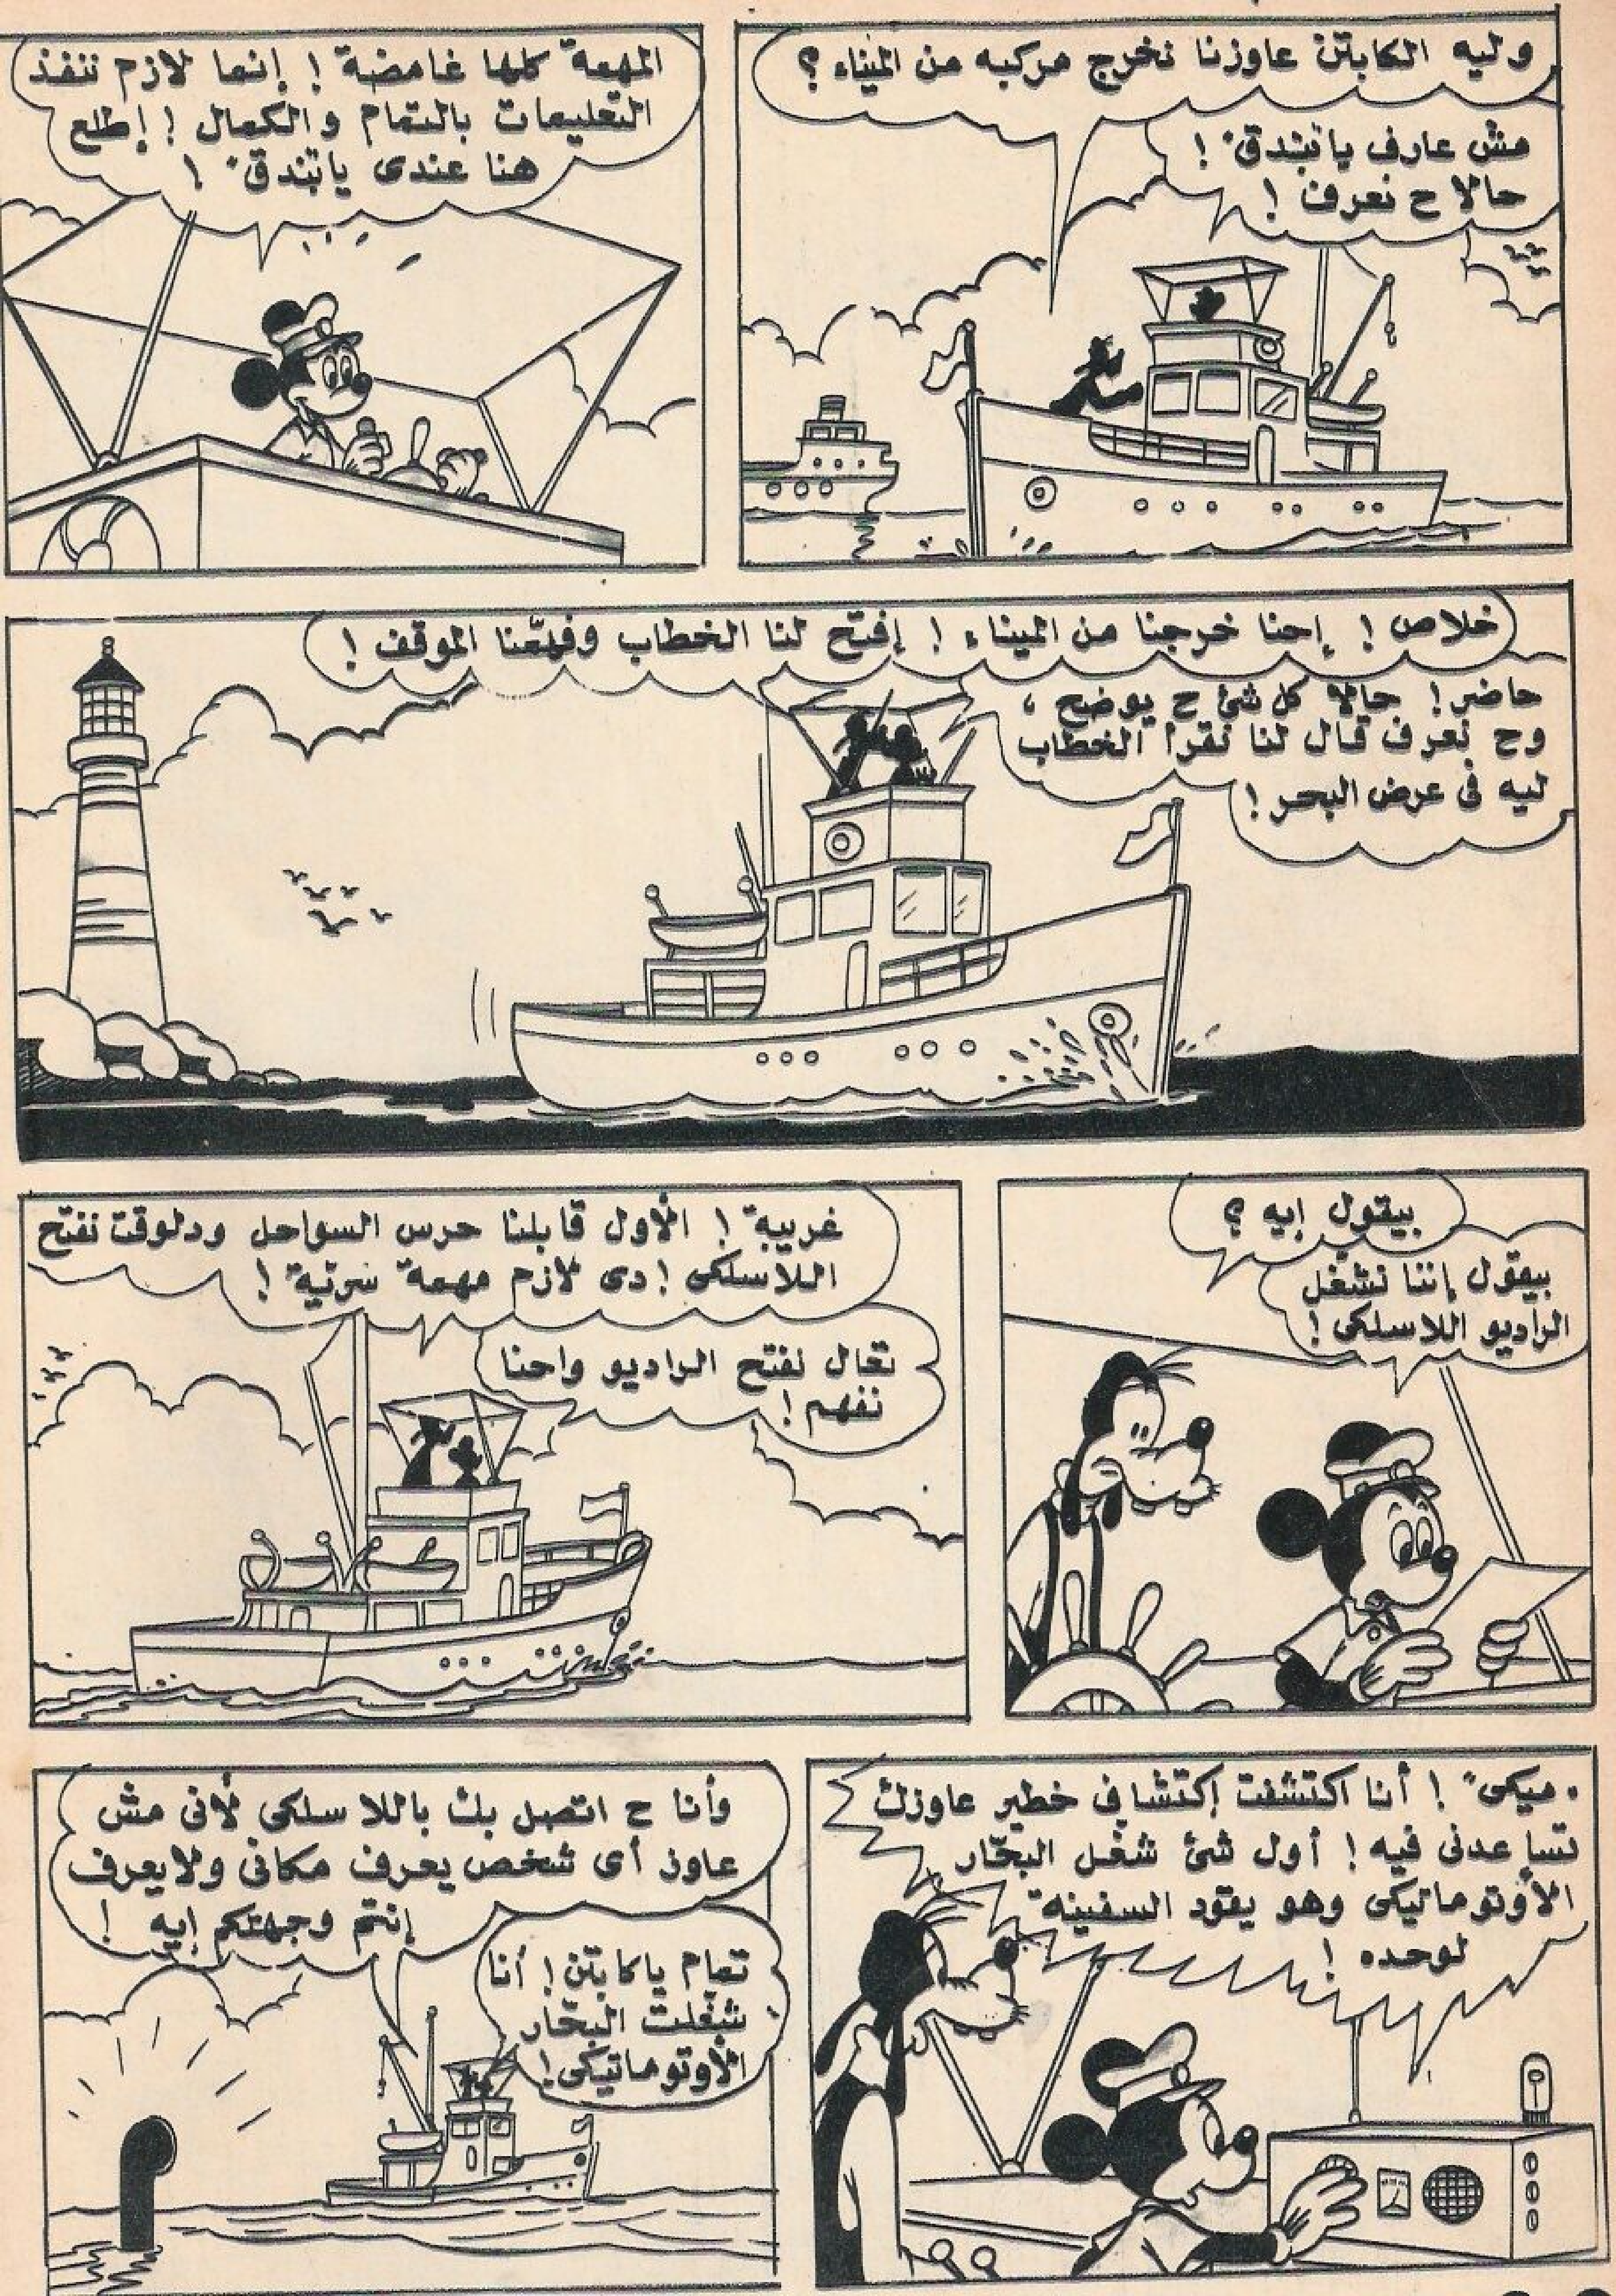 وليه الكابتن عاوزنا نخرج مركبه من الميناء ؟
مش عارف يا "بندق" !
حالا ح نعرف !
المهمة كلها غامضة ! إنما لازم ننفذ
التعليمات بالتمام والكمال ! إطلع
هنا عندى يا "بندق" !
خلاص ! إحنا خرجنا من الميناء ! إفتح لنا الخطاب وفهّمنا الموقف !
حاضر ! حالا كل شئ ح يوضح ،
وح نعرف قال لنا نقرأ الخطاب
ليه فى عرض البحر !
بيقول إيه ؟
بيقول إننا نشغل
الراديو اللاسلكى !
غريبة ! الأول قابلنا حرس السواحل ودلوقت نفتح
اللاسلكى ! دى لازم مهمة سرّية !
تعال نفتح الراديو واحنا
نفهم !
"ميكى" ! أنا اكتشفت إكتشاف خطير عاوزك
تساعدنى فيه ! أول شئ شغل البحّار
الأوتوماتيكى وهو يقود السفينة
لوحده !
وأنا ح اتصل بك باللاسلكى لأنى مش
عاوز أى شخص يعرف مكانى ولا يعرف
إنتم وجهتكم إيه !
تمام يا كابتن ! أنا
شغلت البحّار
الأوتوماتيكى !